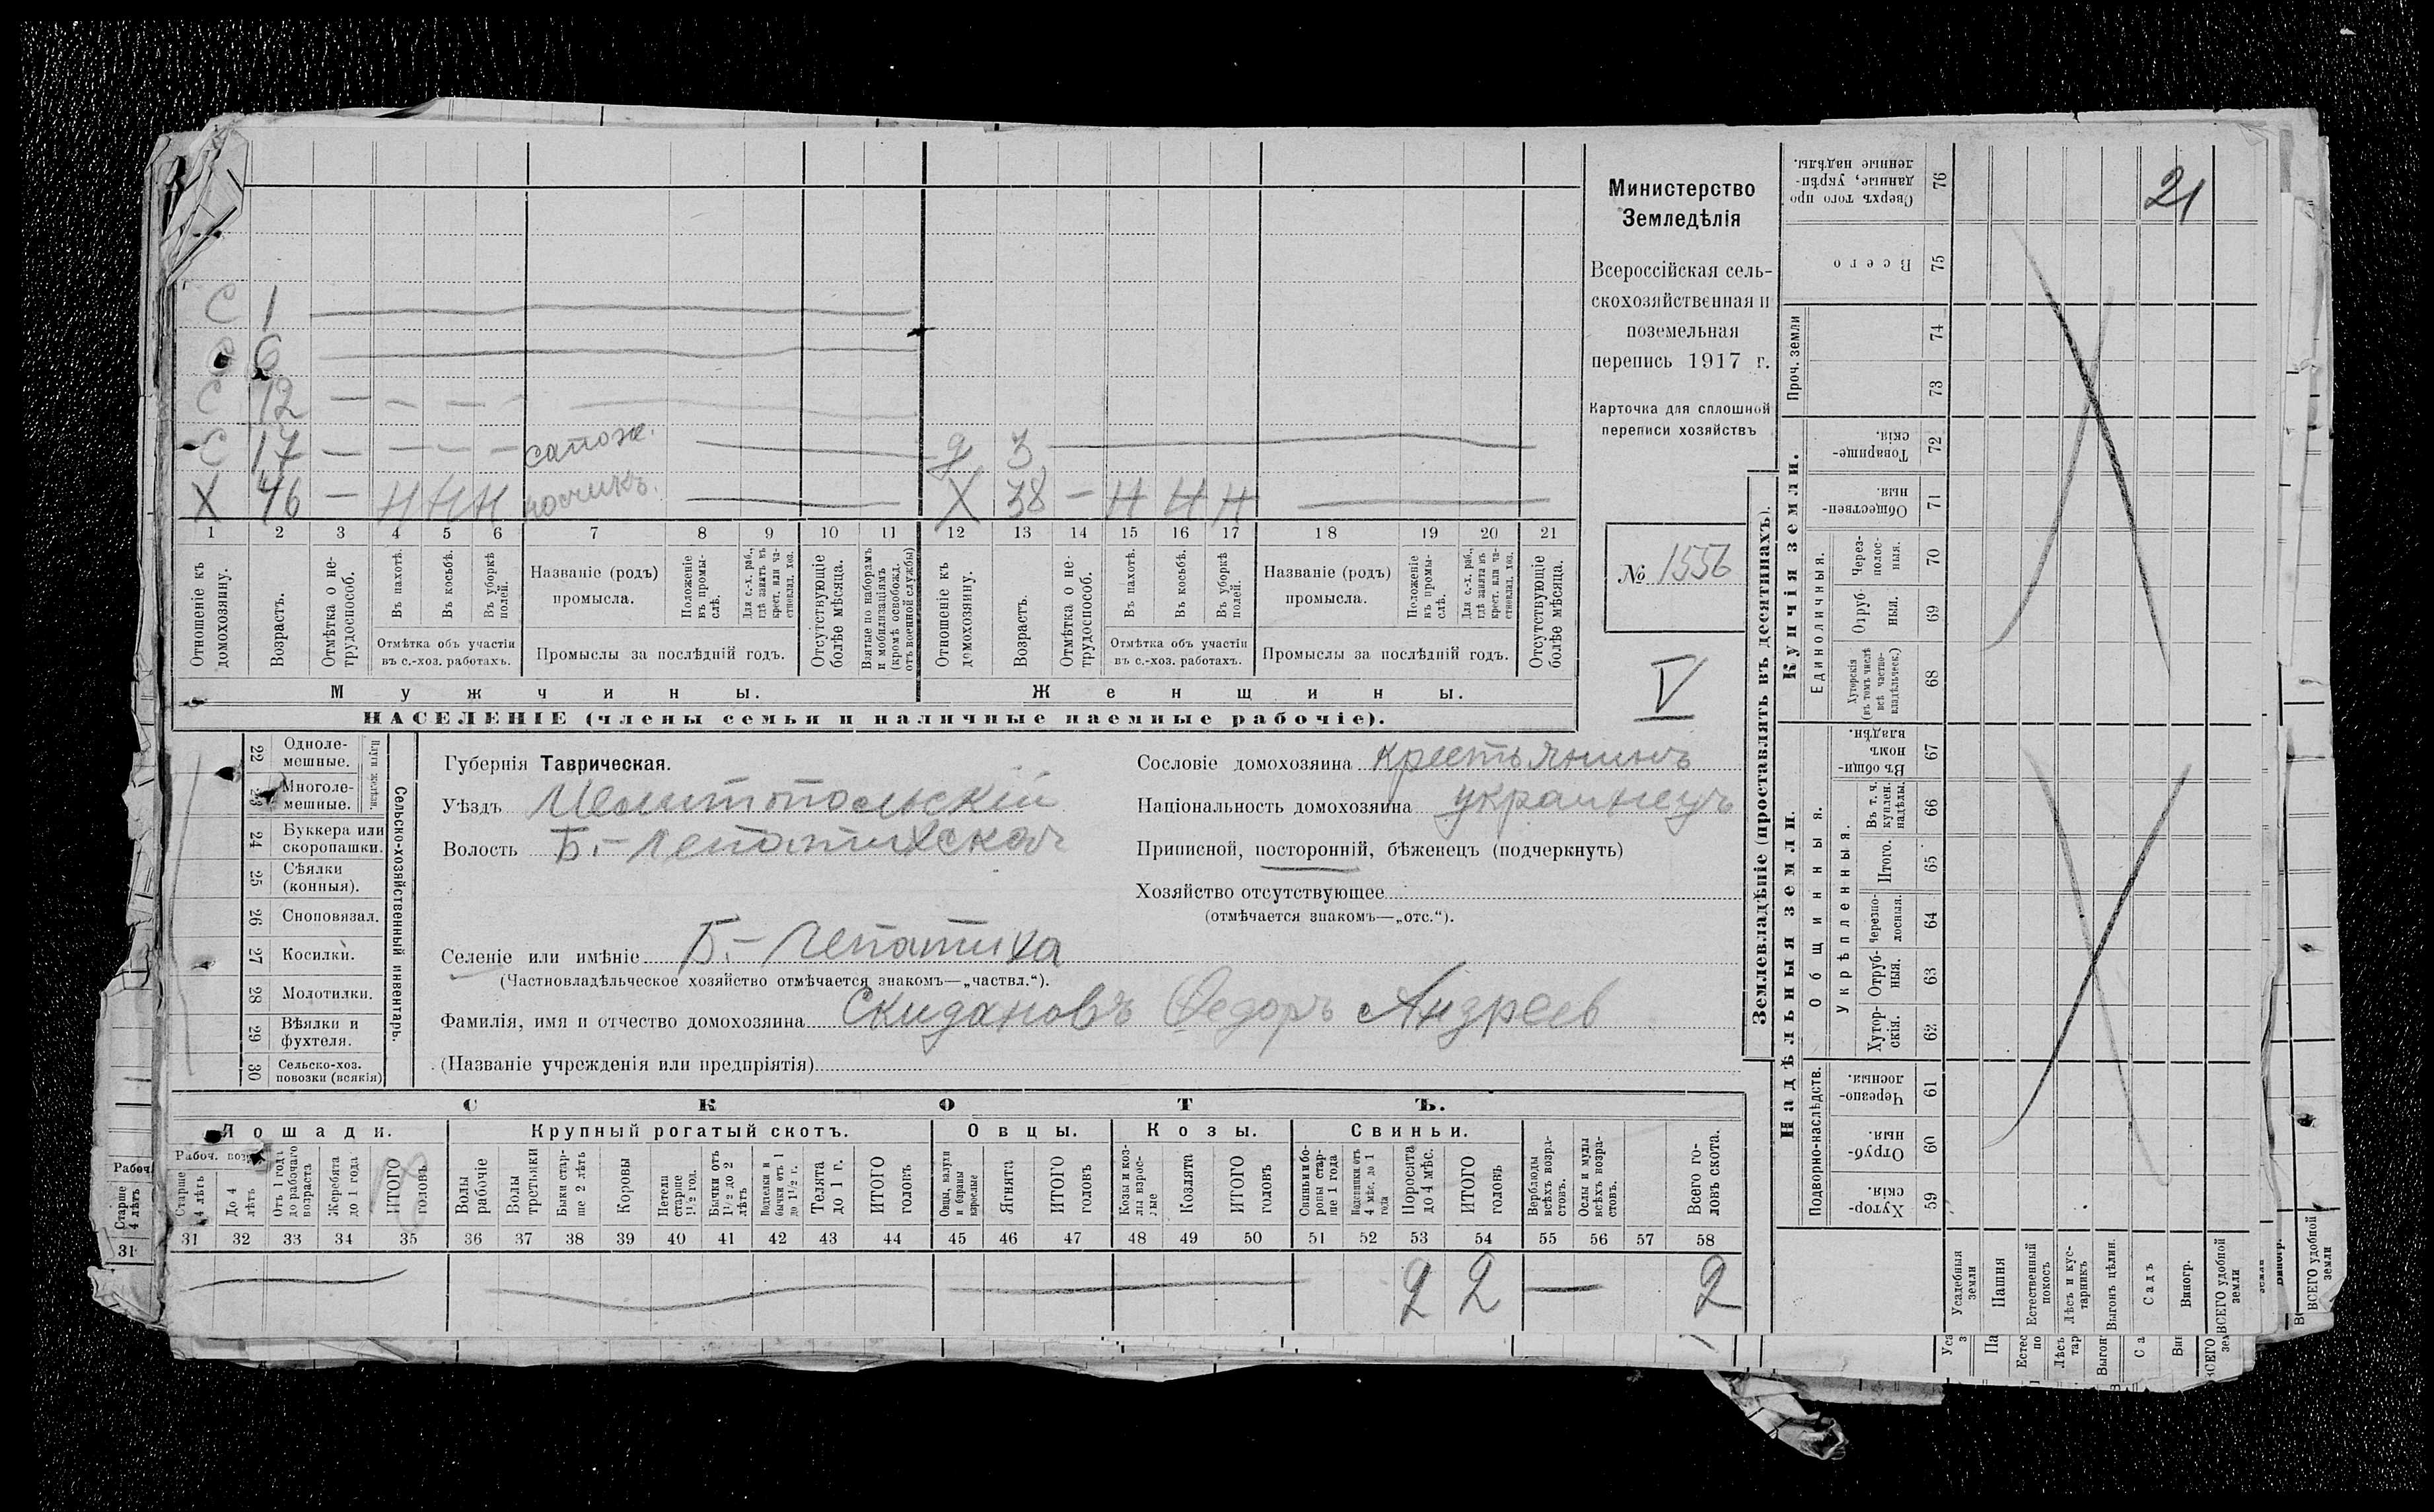 21
Министерство
Земледѣлія
Всероссійская сель-
скохозяйственная и
поземельная
перепись 1917 г.
Карточка для сплошной
переписи хозяйствъ
№ 1556
V
С 1
С 6
С 12 — — — —
С 17 — — — — сапож. — д 3 —
Х 46 — Н Н Н — Х 38 — Н Н Н —
1 2 3 4 5 6 7 8 9 10 11 12 13 14 15 16 17 18 19 20 21
Отношеніе къ домохозяину.
Возрастъ.
Отмѣтка о не-трудоспособ.
Въ пахотѣ.
Въ косьбѣ.
Въ уборкѣ полей.
Отмѣтка объ участіи
въ с.-хоз. работахъ.
Названіе (родъ)
промысла.
Положеніе въ промы-слѣ.
Для с.-х. раб., гдѣ занятъ въ крест. или ча-стновлад. хоз.
Промыслы за послѣдній годъ.
Отсутствующіе болѣе мѣсяца.
Взятые по наборамъ и мобилизаціямъ (кромѣ освобожд. отъ военной службы)
Отношеніе къ домохозяину.
Возрастъ.
Отмѣтка о не-трудоспособ.
Въ пахотѣ.
Въ косьбѣ.
Въ уборкѣ полей.
Отмѣтка объ участіи
въ с.-хоз. работахъ.
Названіе (родъ)
промысла.
Положеніе въ промы-слѣ.
Для с.-х. раб., гдѣ занятъ въ крест. или ча-стновлад. хоз.
Промыслы за послѣдній годъ.
Отсутствующіе болѣе мѣсяца.
Мужчины.
Женщины.
НАСЕЛЕНІЕ (члены семьи и наличные наемные рабочіе).
22 Одноле-мешные.
23 Многоле-мешные.
24 Буккера или скоропашки.
25 Сѣялки (конныя).
26 Сноповязал.
27 Косилки.
28 Молотилки.
29 Вѣялки и фухтеля.
30 Сельско-хоз. повозки (всякія)
Сельско-хозяйственный инвентарь.
Губернія Таврическая.
Уѣздъ Мелитопольскій
Волость Б.-Лепатихская
Селеніе или имѣніе Б.-Лепатиха
(Частновладѣльческое хозяйство отмѣчается знакомъ—„частвл.“).
Фамилія, имя и отчество домохозяина Скидановъ Федоръ Андреев
(Названіе учрежденія или предпріятія)
Сословіе домохозяина крестьянинъ
Національность домохозяина украинецъ
Приписной, посторонній, бѣженецъ (подчеркнуть)
Хозяйство отсутствующее
(отмѣчается знакомъ—„отс.“).
СКОТЪ.
Лошади.
Крупный рогатый скотъ.
Овцы.
Козы.
Свиньи.
Старше 4 лѣтъ
До 4 лѣтъ
Отъ 1 года до рабочаго возраста
Жеребята до 1 года
ИТОГО головъ.
Волы рабочіе
Волы третьяки
Быки стар-ше 2 лѣтъ
Коровы
Нетели старше 1½ год.
Бычки отъ 1½ до 2 лѣтъ
Телята до 1 г.
ИТОГО головъ
Овцы, валухи и бараны взрослые
Ягнята
ИТОГО головъ
Козы и коз-лы взрос-лые
Козлята
ИТОГО головъ
Свиньи и бо-ровы стар-ше 1 года
Поросята до 4 мѣс.
ИТОГО головъ
Верблюды всѣхъ возра-стовъ.
Ослы и мулы всѣхъ возра-стовъ.
Всего го-ловъ скота.
31 32 33 34 35 36 37 38 39 40 41 42 43 44 45 46 47 48 49 50 51 52 53 54 55 56 57 58
2 2 — 2
Землевладѣніе (проставлять въ десятинахъ).
Сверхъ того про-данные, укрѣп-ленные надѣлы. 76
Всего 75
Проч. земли 74
73
Купчія земли.
Товарище-скія. 72
Обществен-ныя. 71
Единоличныя.
Через-полос-ныя. 70
Отруб-ныя. 69
Хуторскія (въ томъ числѣ всѣ частно-владѣльческ.) 68
Надѣльныя земли.
Общинныя.
Въ общи-номъ владѣн. 67
Укрѣпленныя.
Въ т. ч. куплен. надѣлы. 66
Итого. 65
Черезпо-лосныя. 64
Отруб-ныя. 63
Хутор-скія. 62
Подворно-наслѣдств.
Черезпо-лосныя. 61
Отруб-ныя. 60
Хутор-скія. 59
Усадебныя земли
Пашня
Естественный покосъ
Лѣсъ и кус-тарникъ
Выгонъ цѣлин.
Садъ
Виногр.
ВСЕГО удобной земли
ВСЕГО удобной земли
Старше 4 лѣтъ
31